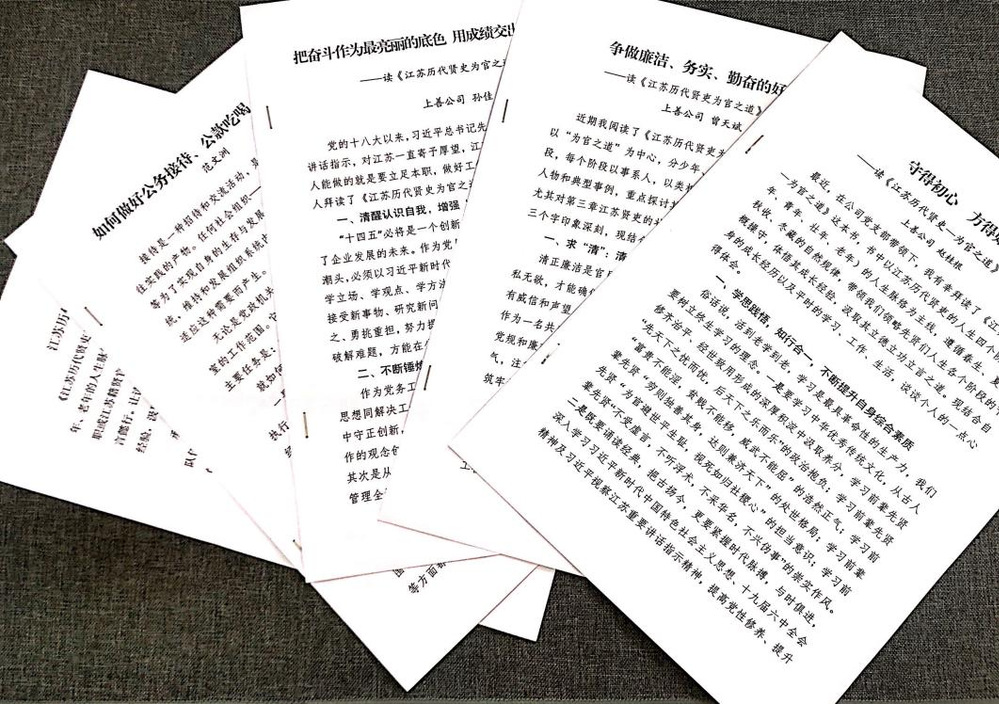 江苏历
《江苏历代贤吏
年、老年的人生脉
职或江苏籍贤
言懿行,让
经验,汲
队
如何做好公务接待、公款吃喝
范文洲
接待是一种招待和交流活动,是
往实践的产物。任何社会组织
等为了实现自身的生存与发展
统、维持和发展组织系统
适应这种需要而产生。
无论是党政机关
室的工作范围,
主要任务是:
就如何
执行
等方面
把奋斗作为最亮丽的底色 用成绩交出
——读《江苏历代贤吏为官之道
上善公司 孙佳
党的十八大以来,习近平总书记先
讲话指示,对江苏一直寄予厚望,江
人能做的就是要立足本职,做好工
人拜读了《江苏历代贤吏为官之道
一、清醒认识自我,增强
“十四五”必将是一个创新
了企业发展的未来。作为党
潮头,必须以习近平新时代
学立场、学观点、学方法
接受新事物、研究新问
之、勇挑重担,努力提
破解难题,方能在
二、不断锤炼
作为党务工
思想同解决工
中守正创新,
作的观念
其次是从
管理全
争做廉洁、务实、勤奋的好
——读《江苏历代贤吏为官之道》
上善公司 曾天斌
近期我阅读了《江苏历代贤吏为
以“为官之道”为中心,分少年、
段,每个阶段以事系人,以类
人物和典型事例,重点探讨
尤其对第三章江苏贤吏的
三个字印象深刻,现结
一、求“清”:清
清正廉洁是官
私无欲,才能确
有威信和声望
作为一名共
党规和廉
气,注
筑牢
守得初心 方得
——读《江苏历代贤吏—为官之道》
上善公司 赵桂根
最近,在公司党支部带领下,我有幸拜读了《江
—为官之道》这本书,书中以江苏历代贤吏的人生四个阶
年、青年、壮年、老年)的人生脉络为主线,遵循春生、夏
秋收、冬藏的自然规律,带领我们领略先贤们人生各个阶段的
概操守,体悟其成长经验,汲取其立德立功立言之道。现结合自
身的成长经历以及平时的学习、工作、生活,谈谈个人的一点心
得体会。
一、学思践悟,知行合一,不断提升自身综合素质
俗话说,活到老学到老,学习是最具革命性的生产力,我们
要树立终生学习的理念。一是要学习中华优秀传统文化,从古人
修齐治平、经世致用形成的深厚积淀中汲取养分,学习前辈先贤
“先天下之忧而忧,后天下之乐而乐”的政治抱负;学习前辈先贤
“富贵不能淫,贫贱不能移,威武不能屈”的浩然正气;学习前
辈先贤“穷则独善其身,达则兼济天下”的处世格局;学习前辈
先贤“为官避世平生耻,视死如归社稷心”的担当意识;学习前
辈先贤“不受虚言,不听浮术,不采华名,不兴伪事”的崇实作风。
二是既要诵读经典,把古扬今,更要紧握时代脉搏,与时俱进,
深入学习习近平新时代中国特色社会主义思想、十九届六中全会
精神及习近平视察江苏重要讲话指示精神,提高党性修养、提升